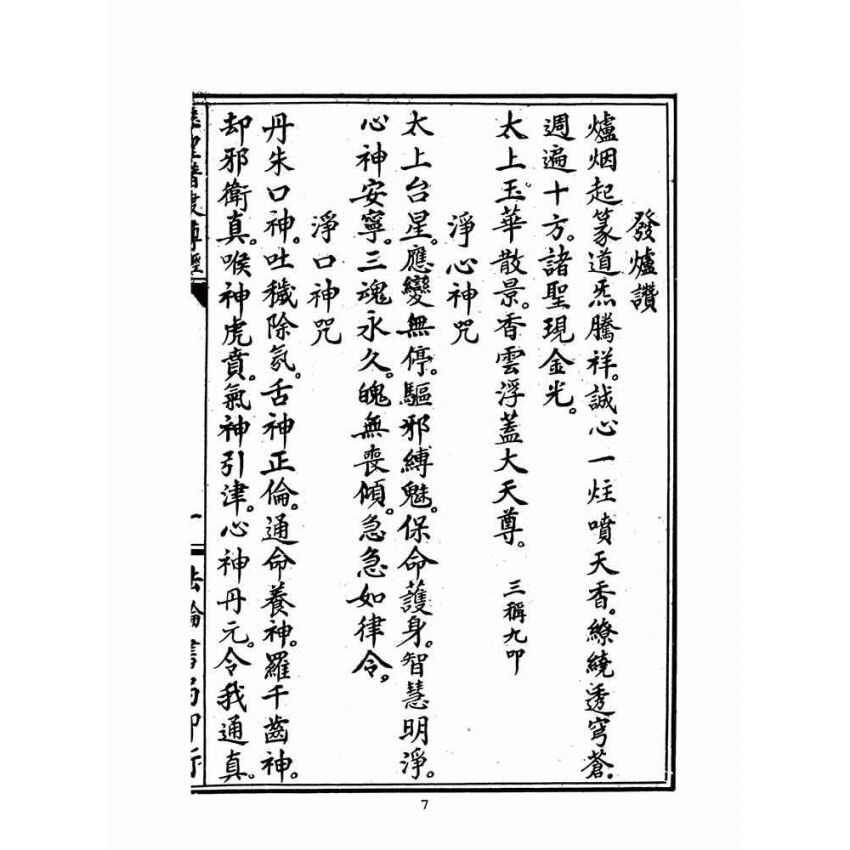 發爐讚
爐烟起篆道炁騰祥。誠心一炷噴天香。繚繞透穹蒼。
週遍十方。諸聖現金光。
太上玉華散景。香雲浮蓋大天尊。三稱九叩
淨心神咒
太上台星。應變無停。驅邪縛魅。保命護身。智慧明淨。
心神安寧。三魂永久。魄無喪傾。急急如律令。
淨口神咒
丹朱口神。吐穢除氛。舌神正倫。通命養神。羅千齒神。
却邪衛真。喉神虎賁。氣神引津。心神丹元。令我通真。
一
書局印
7